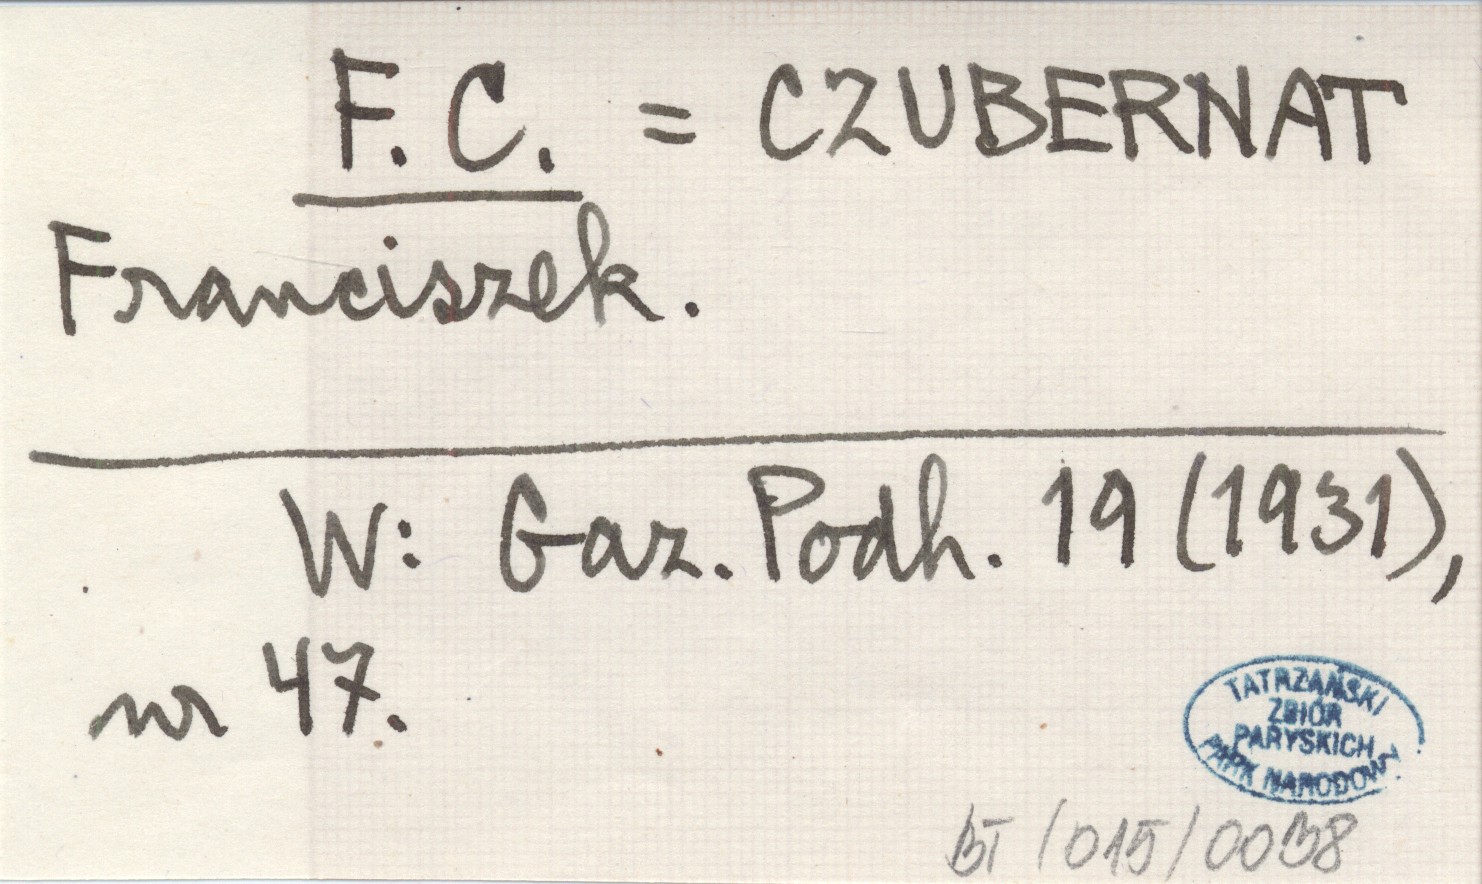 F. C. = CZUBERNAT
Franciszek.
W: Gaz. Podh. 19 (1931),
nr 47.
TATRZAŃSKI
ZBIÓR
PARYSKICH
PARK NARODOWY
BT / 015 /